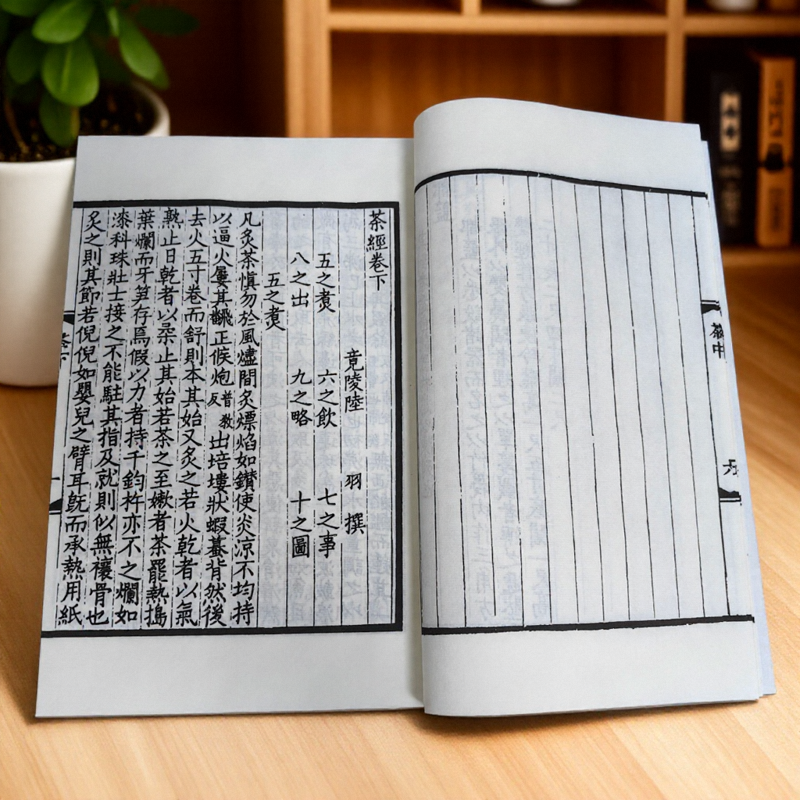 茶經卷下
竟陵陸 羽 撰
五之煑 六之飲 七之事
八之出 九之略 十之圖
五之煑
凡炙茶慎勿於風燼間炙熛焰如鑽使炎涼不均持
以逼火屢其飜正候炮普教反出培塿狀蝦蟇背然後
去火五寸卷而舒則本其始又炙之若火乾者以氣
熟止日乾者以柔止其始若茶之至嫩者茶罷熱搗
葉爛而牙笋存焉假以力者持千鈞杵亦不之爛如
漆科珠壯士接之不能駐其指及就則似無禳骨也
炙之則其節若倪倪如嬰兒之臂耳既而承熱用紙
茶中